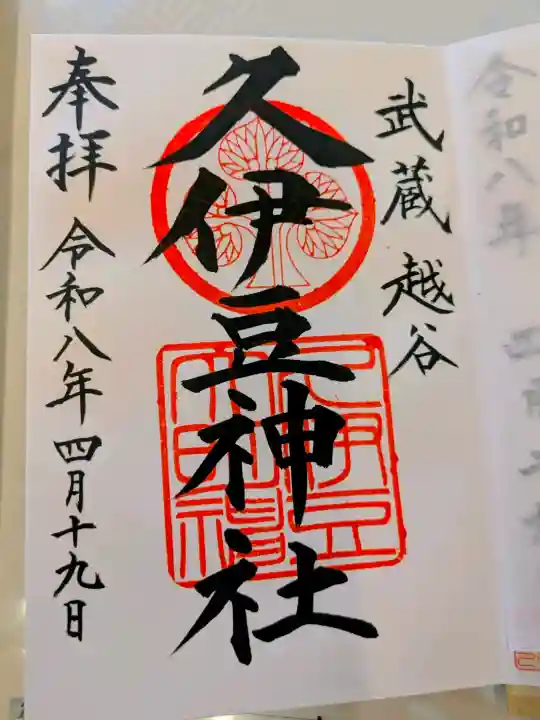 令和八年
武蔵越谷
久伊豆神社
奉拝 令和八年四月十九日